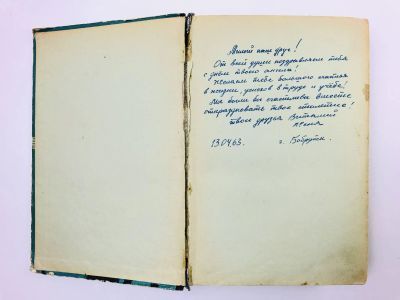 Милый наш друг!
От всей души поздравляем тебя
с днём твоего ангела!
Желаем тебе большого счастья
в жизни, успехов в труде и учёбе!
Мы были бы счастливы вместе
отпраздновать твоё столетие!
Твои друзья Виталий
Женя
13.04.63. г. Бобруйск.